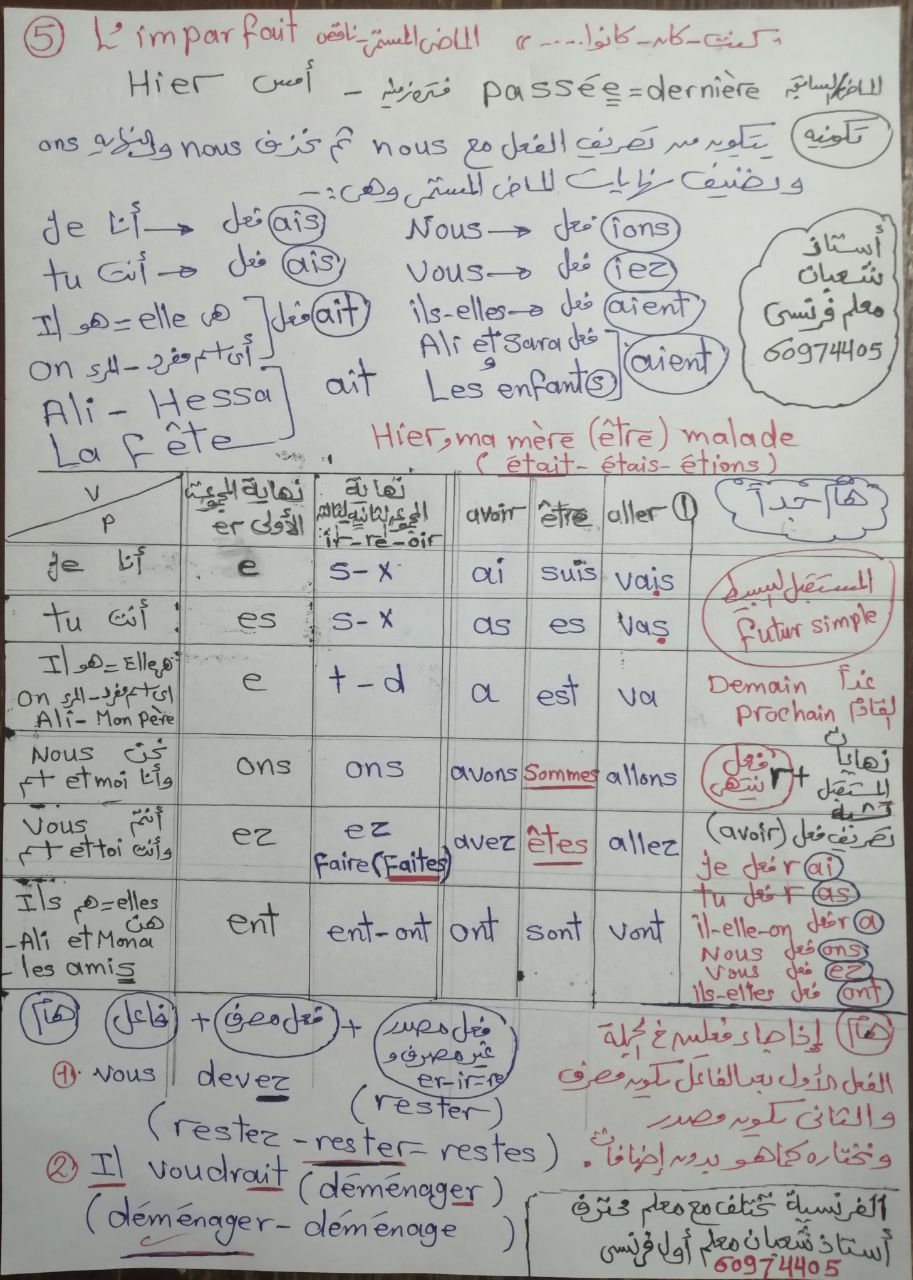 ⑤ L'imparfait الماضى المستمر - ناقص " كنت - كان - كانوا .... "
Hier أمس - فترة زمنية passée = dernière الماضى/السابق
تكوينه يتكون من تصريف الفعل مع nous ثم نحذف nous والنهاية ons
ونضيف نهايات الماضى المستمر وهى :-
Je أنا → فعل ais
tu أنت → فعل ais
Il هو = elle هى
On أى اسم مفرد - المرء فعل ait
Ali - Hessa
La fête ait
Nous → فعل ions
Vous → فعل iez
ils-elles → فعل aient
Ali et Sara فعل
Les enfants aient
أستاذ
شعبان
معلم فرنسى
60974405
Hier, ma mère (être) malade
( était - étais - étions )
V
P نهاية المجموعة الأولى er نهاية المجموعة الثانية والثالثة ir-re-oir avoir être aller ①
Je أنا e s-x ai suis vais
tu أنت es s-x as es vas
Il هو = Elle هى
On أى اسم مفرد - المرء e t-d a est va
Ali - Mon père
Nous نحن
وأنا اسم et moi ons ons avons sommes allons
Vous أنتم
وأنت اسم et toi ez ez avez êtes allez
faire (faites)
Ils هم = elles هن
- Ali et Mona ent ent-ont ont sont vont
- les amis
هام جداً
المستقبل البسيط
futur simple
Demain غداً
prochain القادم
فعل ينتهى r + نهايات المستقبل تشبه
تصريف فعل (avoir)
je فعل r ai
tu فعل r as
il-elle-on فعل r a
Nous فعل ons
Vous فعل ez
ils-elles فعل ont
هام فاعل + فعل مصرف + فعل مصدر
غير مصرف و
er-ir-re
① Vous devez (rester)
(restez - rester - restes)
② Il voudrait (déménager)
(déménager - déménage )
هام إذا جاء فعلين فى الجملة
الفعل الأول بعد الفاعل يكون مصرف
والثانى يكون مصدر
ونختاره كما هو بدون إضافات.
الفرنسية تختلف مع معلم محترف
أستاذ شعبان معلم أول فرنسى
60974405